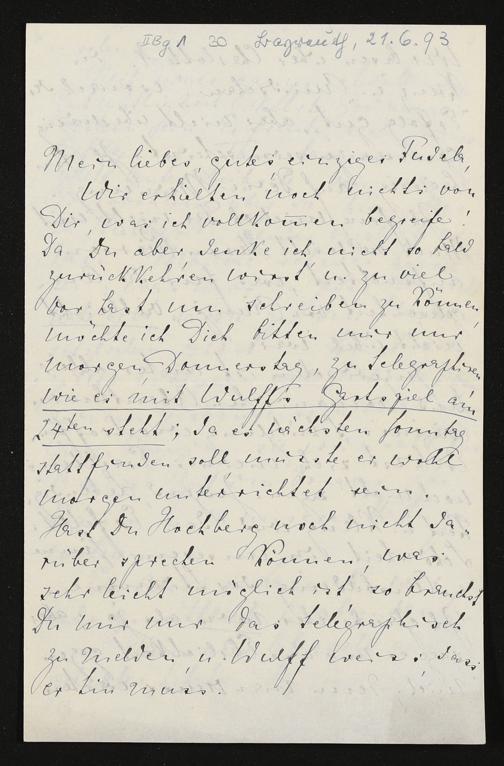 IIBg 1 30 Bayreuth, 21.6.93
Mein liebes, gutes einziges Fidele,
Wir erhielten noch nichts von
Dir, was ich vollkommen begreife!
Da Du aber denke ich nicht so bald
zurückkehren wirst u. zu viel
vor hast um schreiben zu können,
möchte ich Dich bitten mir nur
morgen, Donnerstag, zu telegraphiren
wie es mit Wulff's Gastspiel am
24ten steht; da es nächsten Sonntag
stattfinden soll müsste er wohl
morgen unterrichtet sein.
Hast Du Hochberg noch nicht da-
rüber sprechen können, was
sehr leicht möglich ist so brauchst
Du mir nur das telegraphisch
zu melden, u. Wulff weiss, dass
er hin muss.